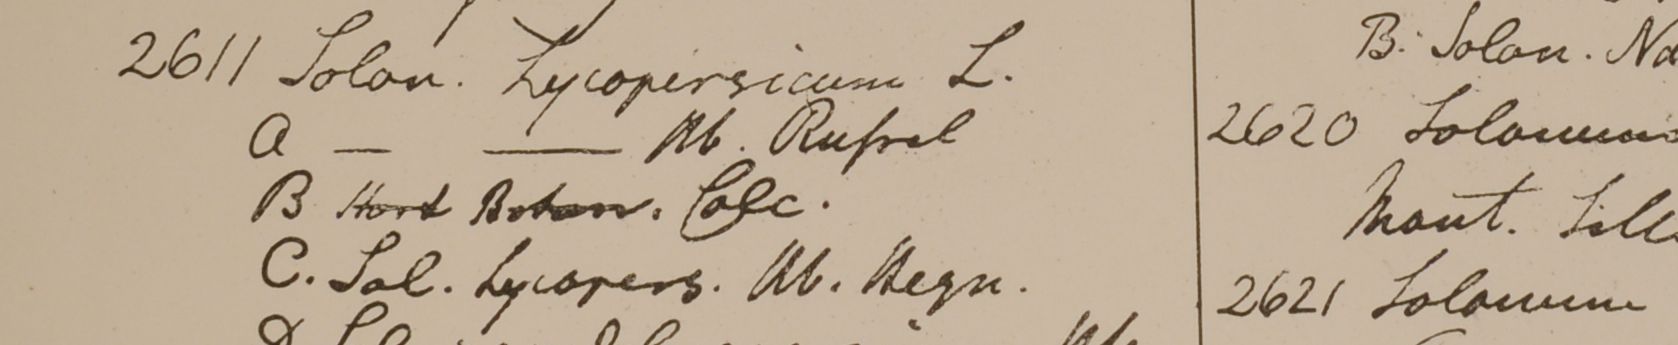 2611 Solan. Lycopersicum L.
A — —— Hb. Russel
B Hort Botan. Calc.
C. Sol. Lycopers. Hb. Heyn.
B. Solan.
2620 Solanum
Mont. Sill
2621 Solanum